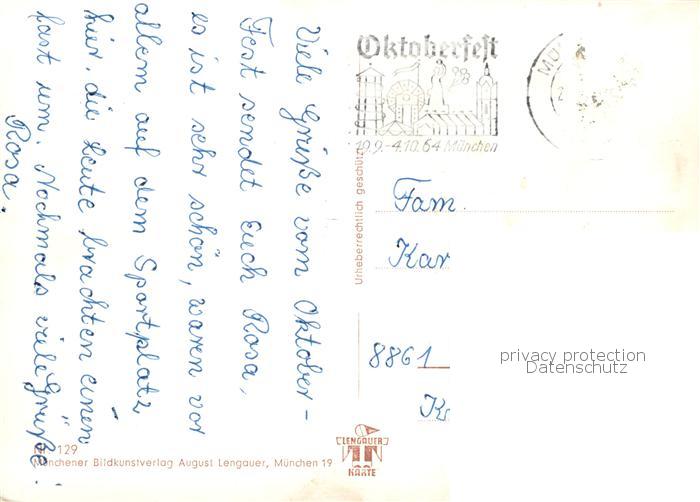 Viele Grüße vom Oktober-
Fest sendet Euch Rosa,
es ist sehr schön, waren vor
allem auf dem Sportplatz
hier, die Leute brachten einen
fast um. Nochmals viele Grüße.
Rosa.
Oktoberfest
19.9.-4.10.64 München
Urheberrechtlich geschützt
Fam.
Kar
8861
privacy protection
Datenschutz
129
Münchener Bildkunstverlag August Lengauer, München 19
LENGAUER
KARTE